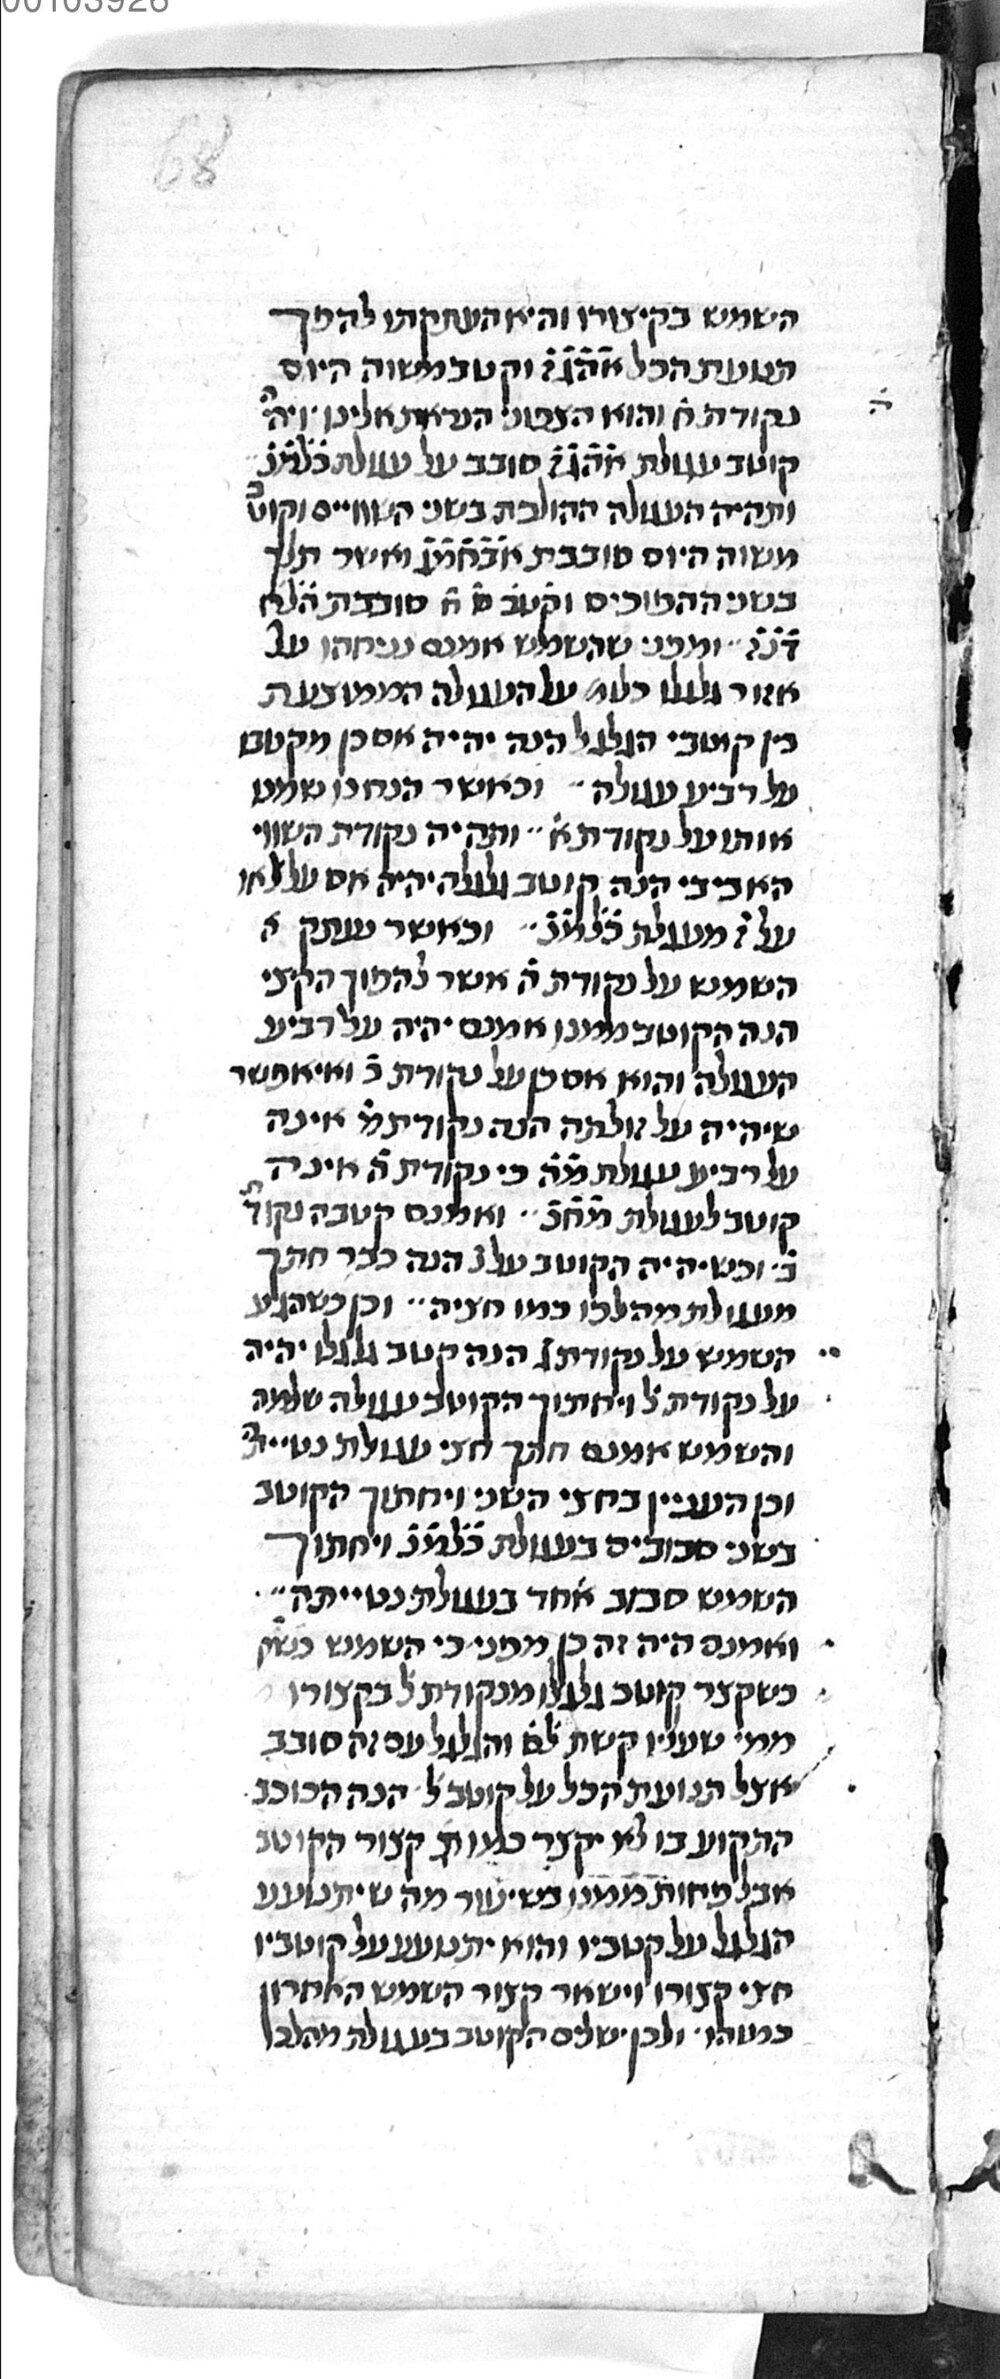 00103926
68
השמש בקיצורו והיא העתקתו להפך
תנועת הכל אהגז וקטב משוה היום
נקודת ח והוא הצפוני הנראת אלינו ויהי'
קוטב עגולת אהגז סובב על עגולת כלמנ
ותהיה העגולה ההולכת בשני השוויים וקוט'
משוה היום סובבת אבחמג ואשר תלך
בשני ההפוכים וקטב ח סובבת
ומפני שהשמש אמנם נניחהו על
אזור גלגלו כלו' על העגולה הממוצעת
בין קוטבי הגלגל הנה יהיה אם כן מקטבו
על רביע עגולה וכאשר הנחנו שמט
אותו על נקודת א ותהיה נקודת השווי
האביבי הנה קוטב גלגלה יהיה אם על ל או
על מעגולת כלמנ וכאשר נעתק א
השמש על נקודת ה אשר להפוך הקיצי
הנה הקוטב ממנו אמנם יהיה על רביע
העגולה והוא אם כן על נקודת כ ואי אפשר
שיהיה על זולתה הנה נקודת מ אינה
על רביע עגולת מה כי נקודת ה אינה
קוטב לעגולת ואמנם קטבה נקוד'
וכשיהיה הקוטב על הנה כבר חתך
מעגולת מהלכו כמו חציה וכן כשהגיע
השמש על נקודת ג הנה קטב גלגלו יהיה
על נקודת ל ויחתוך הקוטב עגולה שלמה
והשמש אמנם חתך חצי עגולת נטיית'
וכן העניין בחצי השני ויחתוך הקוטב
בשני סבובים בעגולת כלמנ ויחתוך
השמש סבוב אחד בעגולת נטייתה
ואמנם היה זה כן מפני כי השמש
כשקצר קוטב גלגלו מנקודת ל בקצורו
ממי שעליו קשת והגלגל עם זה סובב
אצל תנועת הכל על קוטב ל הנה הכוכב
התקוע בו לא יקצר כמות קצור הקוטב
אבל פחות ממנו בשיעור מה שיתנועע
הגלגל על קטביו והוא יתנועע על קוטביו
חצי קצורו וישאר קצור השמש האחרון
כמוהו ולכן ישלים הקוטב בעגולת מהלכו